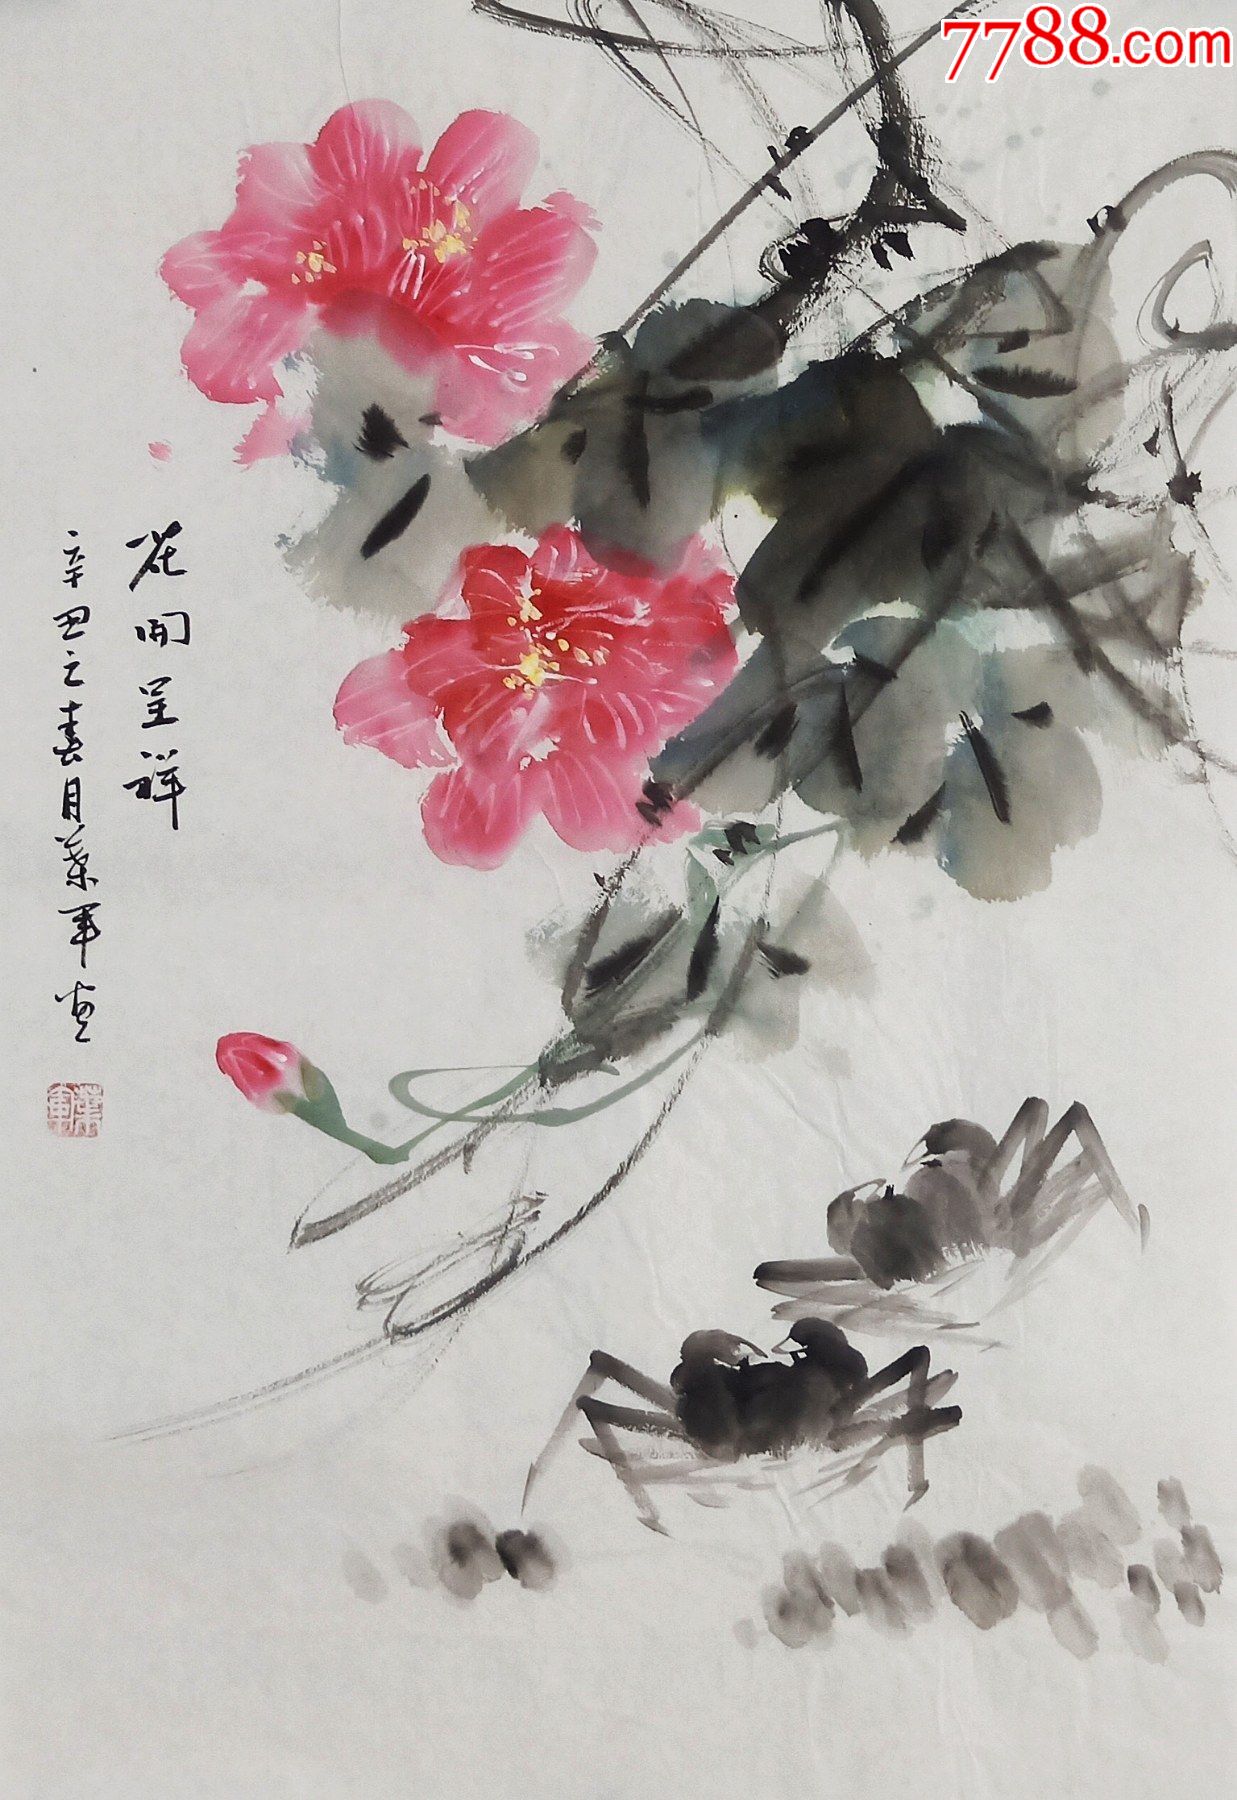 7788.com
花開呈祥
辛丑之春月葉军画
葉军